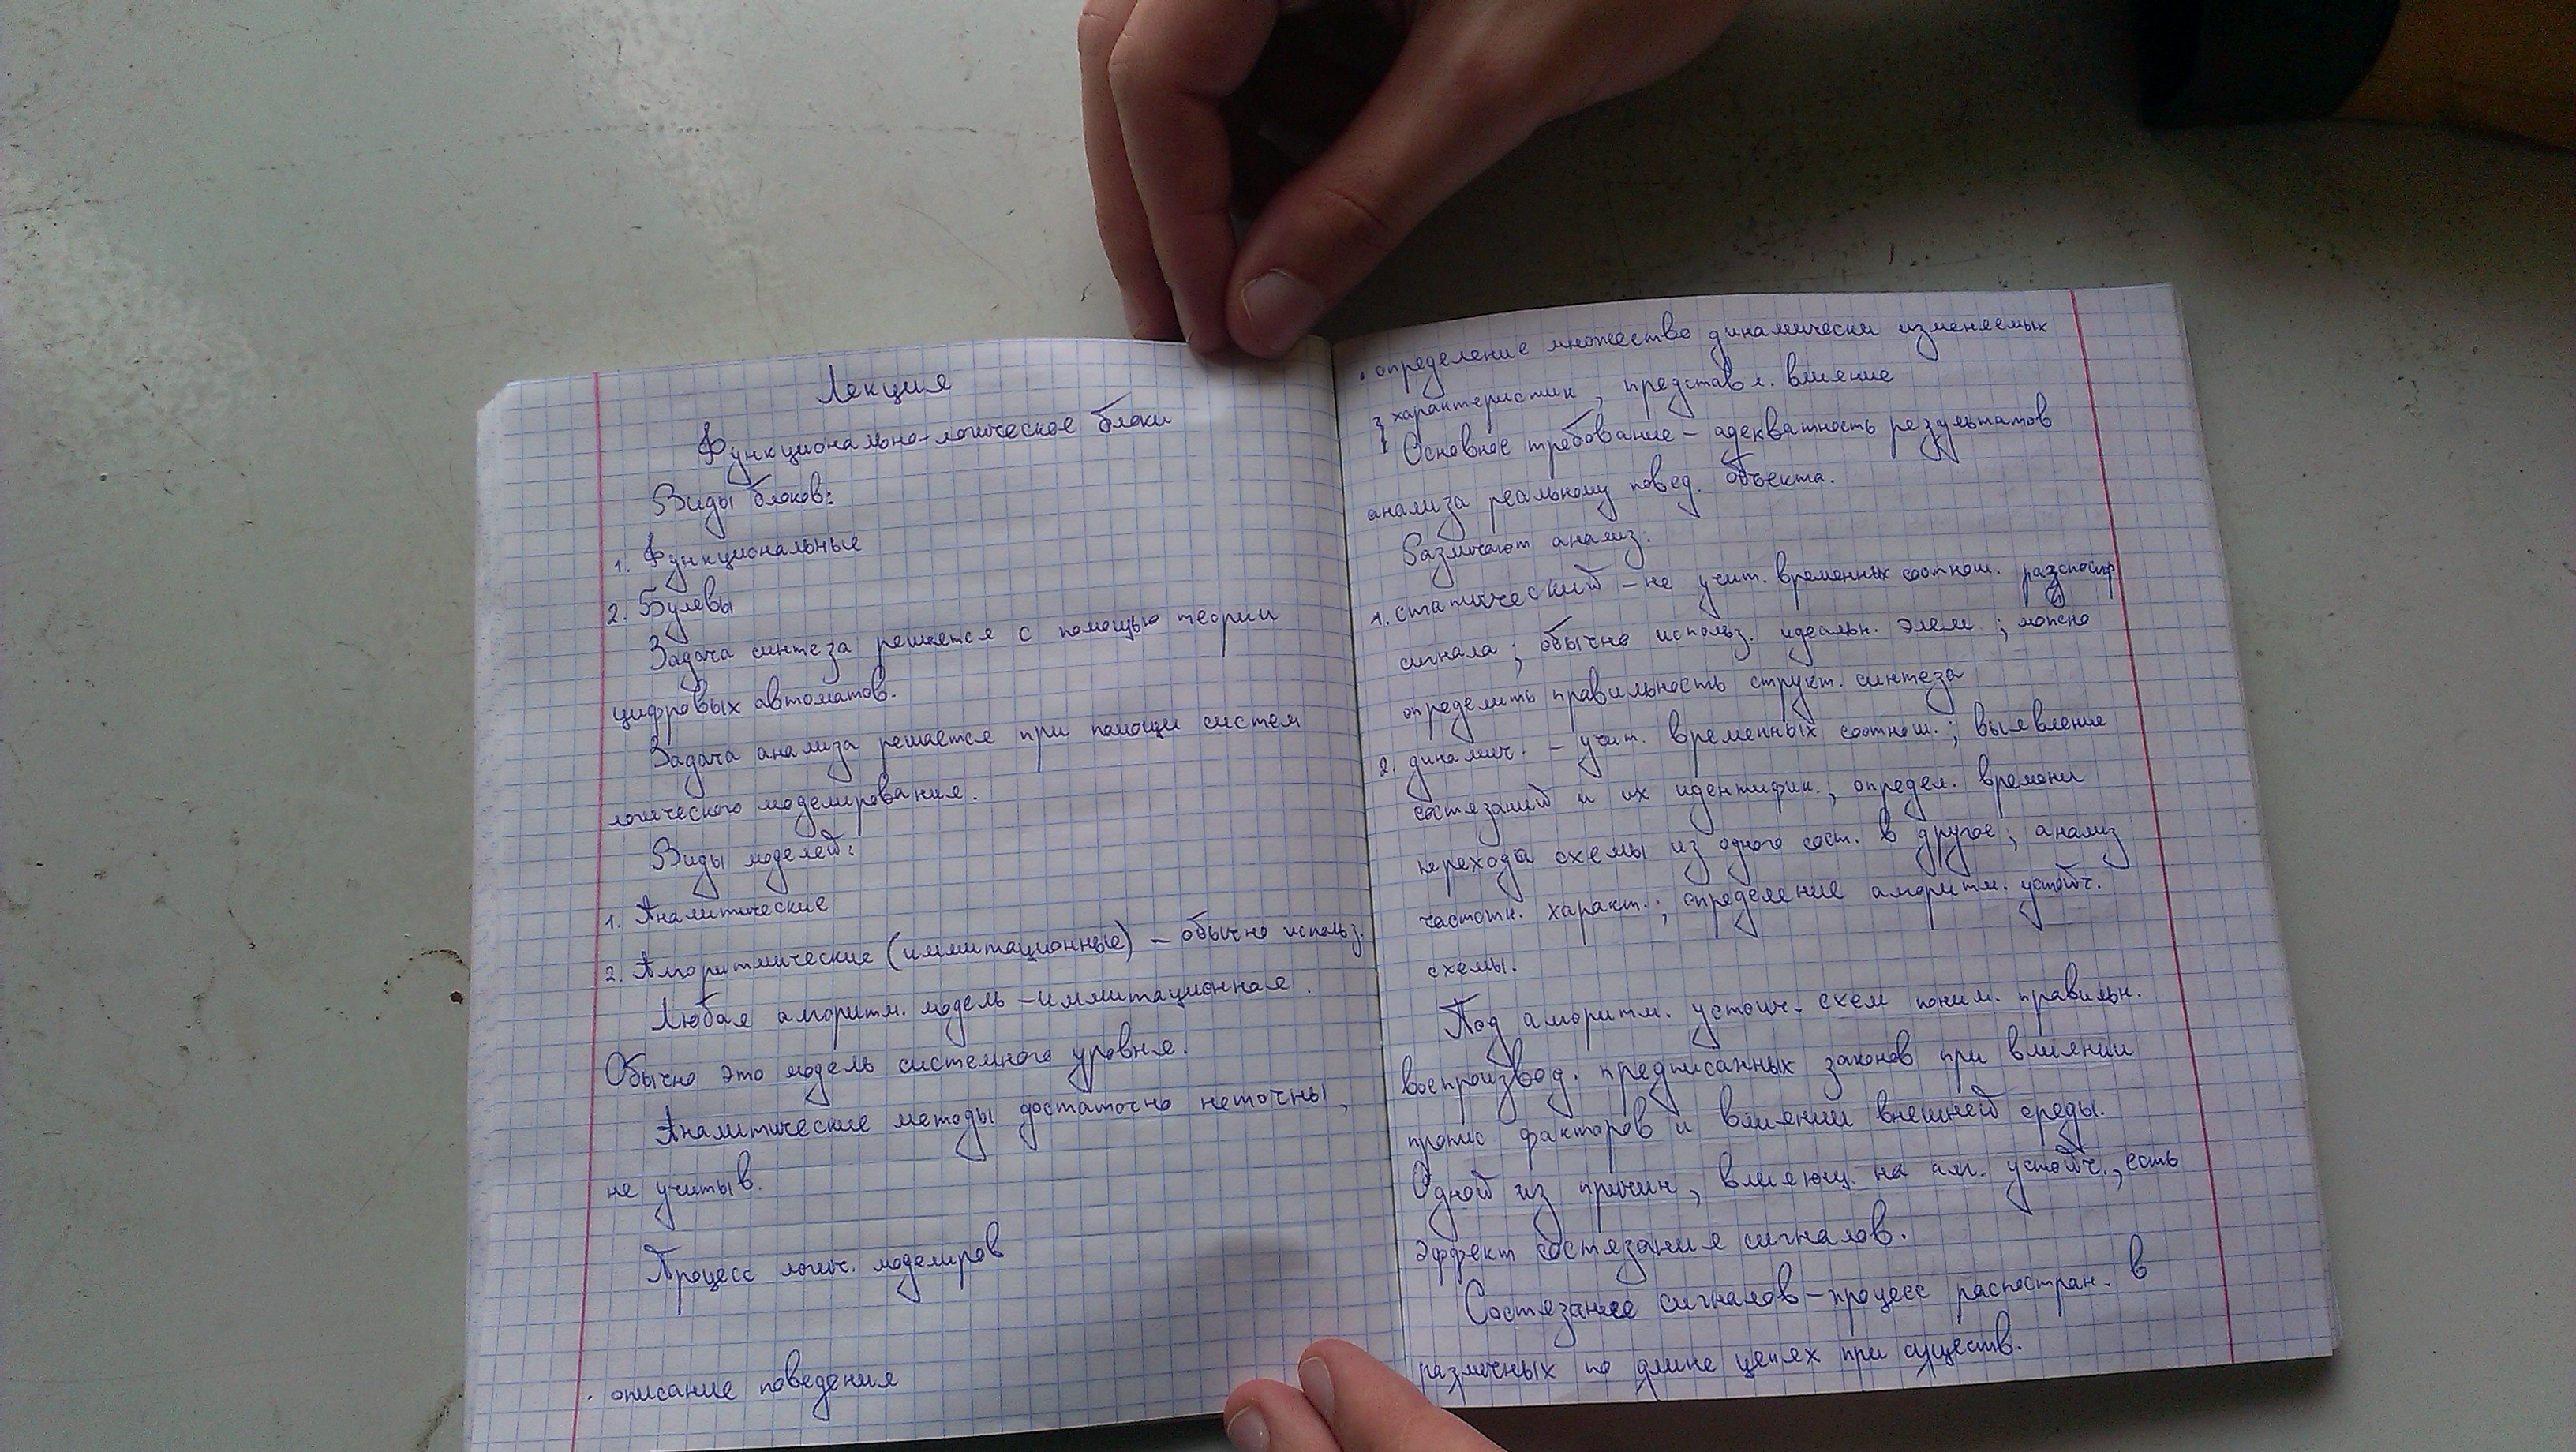 Лекция
Функционально-логическое блоки
Виды блоков:
1. Функциональные
2. Булевы
Задача синтеза решается с помощью теории
цифровых автоматов.
Задача анализа решается при помощи систем
логического моделирования.
Виды моделей:
1. Аналитические
2. Алгоритмические (иммитационные) – обычно использ.
Любая алгоритм. модель – иммитационная.
Обычно это модель системного уровня.
Аналитические методы достаточно неточны,
не учитыв.
Процесс логич. моделиров
· описание поведения
· определение множество динамически изменяемых
характеристик, представл. влияние
Основное требование – адекватность результатов
анализа реальному повед. объекта.
Различают анализ:
1. статический – не учит. временных соотнош.
сигнала; обычно использ. идеальн. элем.; можно
определить правильность структ. синтеза
2. динамич. – учит. временных соотнош.; выявление
состязаний и их идентифик.; определ. времени
перехода схемы из одного сост. в другое; анализ
частотн. характ.; определение алгоритм. устойч.
схемы.
Под алгоритм. устоич. схем поним. правильн.
воспроизвод. предписанных законов при влиянии
факторов и влиянии внешней среды.
Одной из причин, влияющ. на алг. устойч., есть
эффект состязания сигналов.
Состязание сигналов – процесс распостран. в
различных по длине цепях при существ.